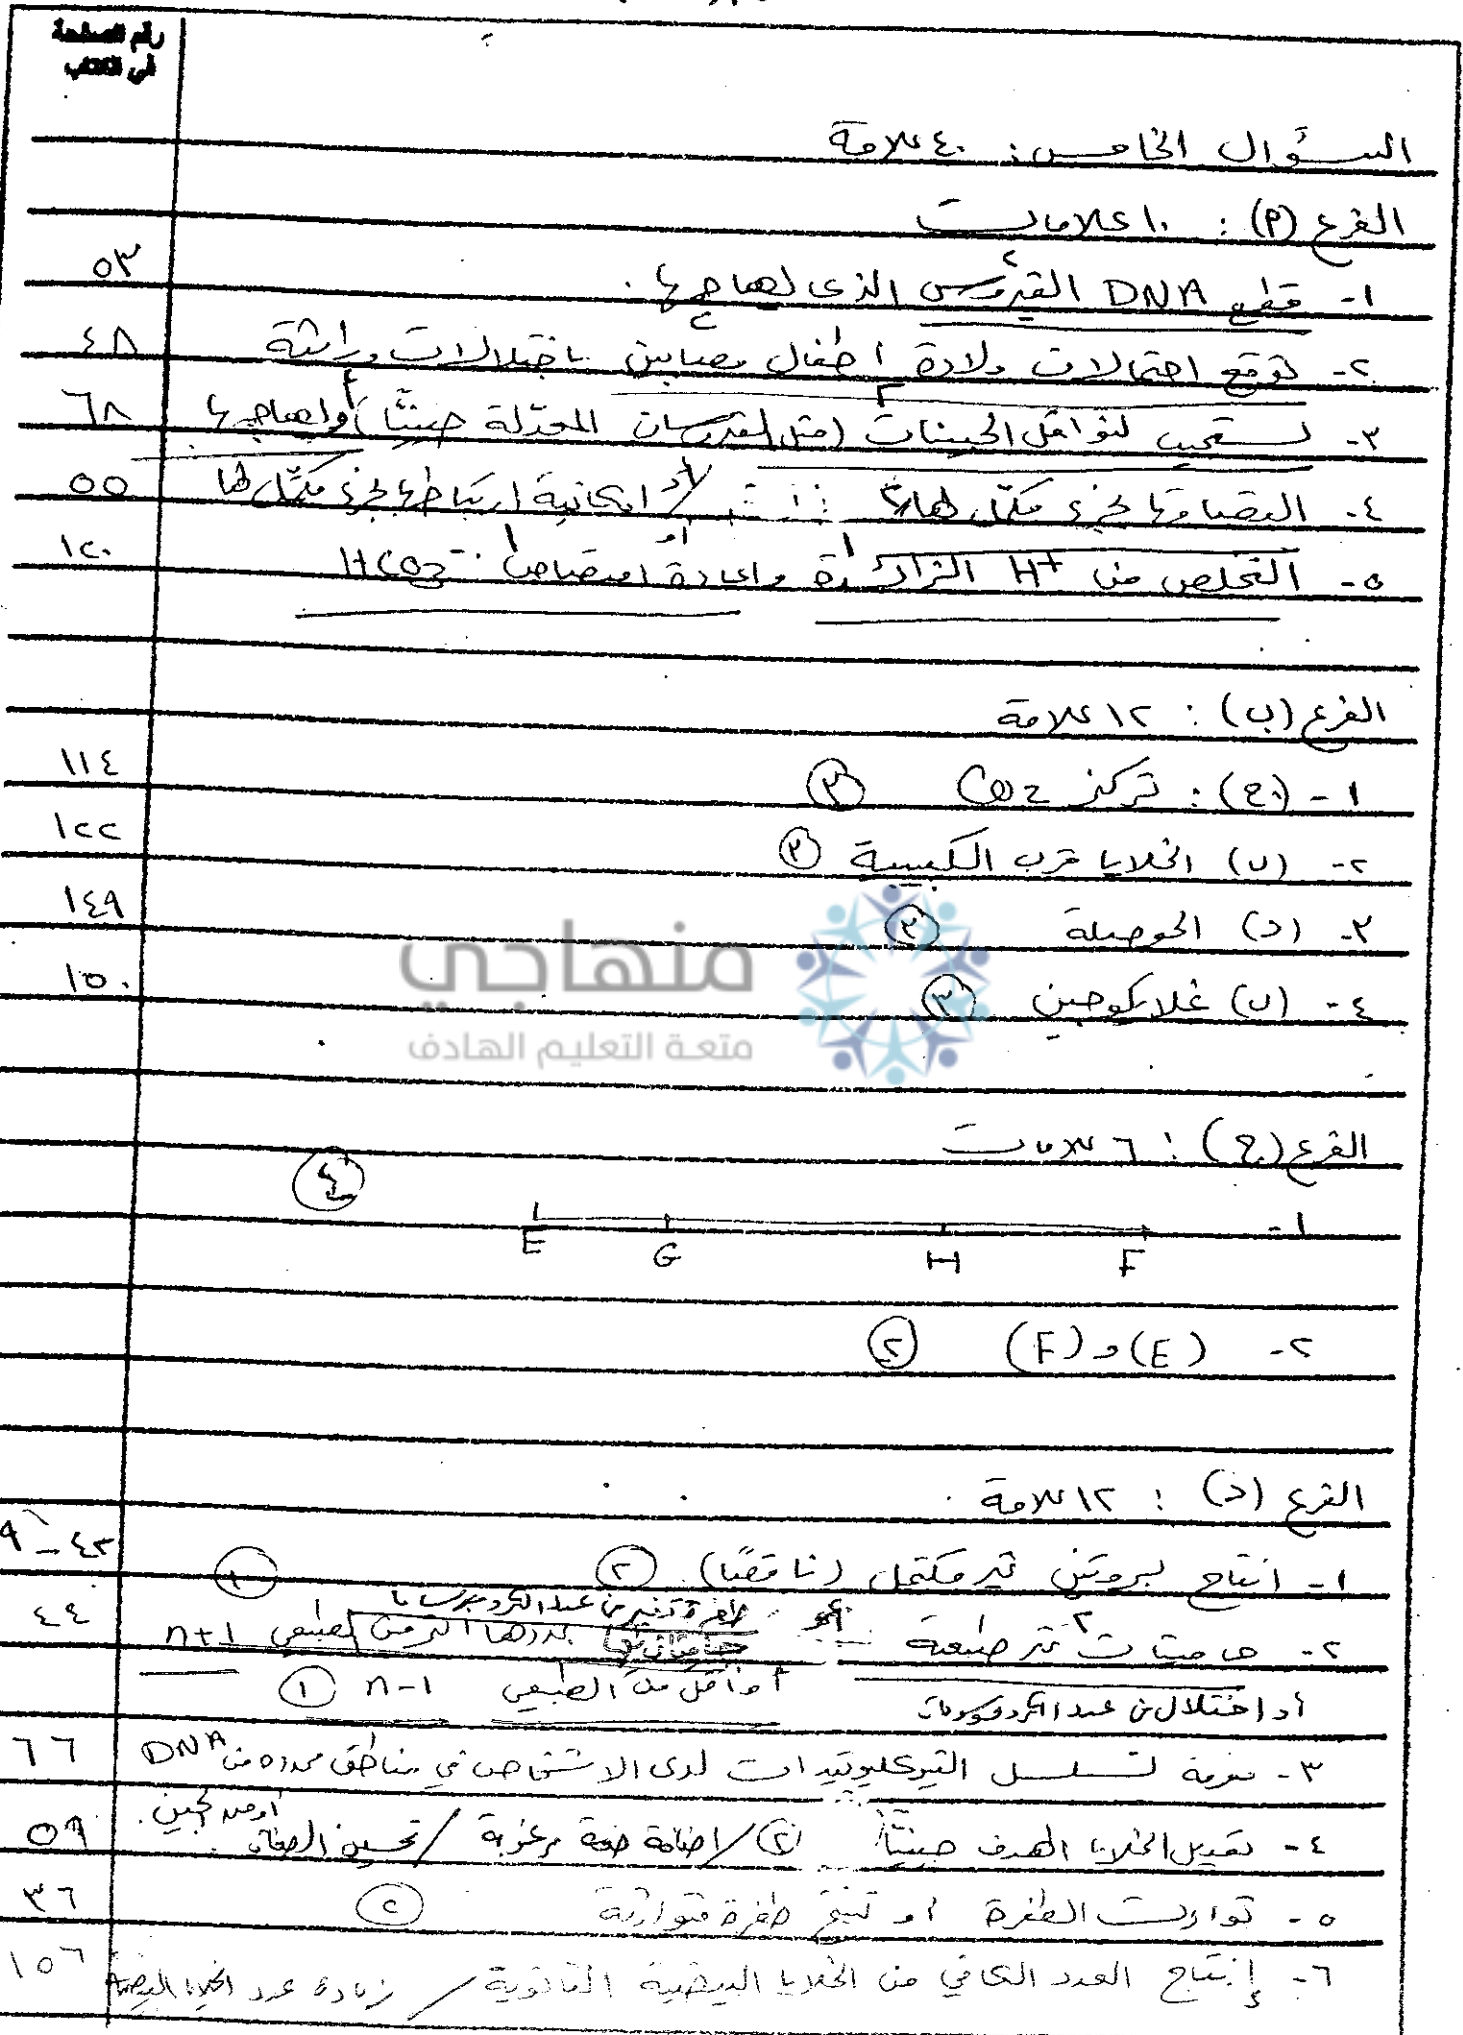 رقم الصفحة
في الكتاب
السؤال الخامس: ٤٠ علامة
الفرع (أ): ١٠ علامات
١- قطع DNA الفيروس الذي يهاجمها. ٥٣
٢- توقع احتمالات ولادة أطفال مصابين باختلالات وراثية ٤٨
٣- تستجيب لنواقل الجينات (مثل الفيروسات المعدلة جينيًّا) أو يهاجمها ٦٨
٤- التصاقها بجزء مكمّل لها / لأن إمكانية ارتباطها بجزء مكمّل لها ٥٥
٥- التخلص من H+ الزائدة وإعادة امتصاص HCO3- ١٢٠
الفرع (ب): ١٢ علامة
١- (ج): تركيز CO2 ٣ ١١٤
٢- (ب) الخلايا قرب الكبيبية ٣ ١٢٢
٣- (د) الحوصلة ٣ ١٤٩
٤- (ب) غلايكوجين ٣ ١٥٠
منهاجي
متعة التعليم الهادف
الفرع (ج): ٦ علامات
١- ٤
E G H F
٢- (E) و (F) ٢
الفرع (د): ١٢ علامة
١- إنتاج بروتين غير مكتمل (ناقصًا). ٢ ٤٢ - ٩
٢- جاميتات غير طبيعية أو طفرة تغير في عدد الكروموسومات عددها أكثر من الطبيعي n+1 ٤٤
أو أقل من الطبيعي n-1 ١
أو اختلال في عدد الكروموسومات
٣- معرفة تسلسل النيوكليوتيدات لدى الأشخاص في مناطق محددة من DNA ٦٦
أو من الجين.
٤- تعديل الخلايا الهدف جينيًّا ٢ / إضافة صفة مرغوبة / تحسين الصفات. ٥٩
٥- توارث الطفرة أو تنتج طفرة متوارثة ٢ ٣٦
٦- إنتاج العدد الكافي من الخلايا البيضية الثانوية / زيادة عدد الخلايا البيضية ١٥٦